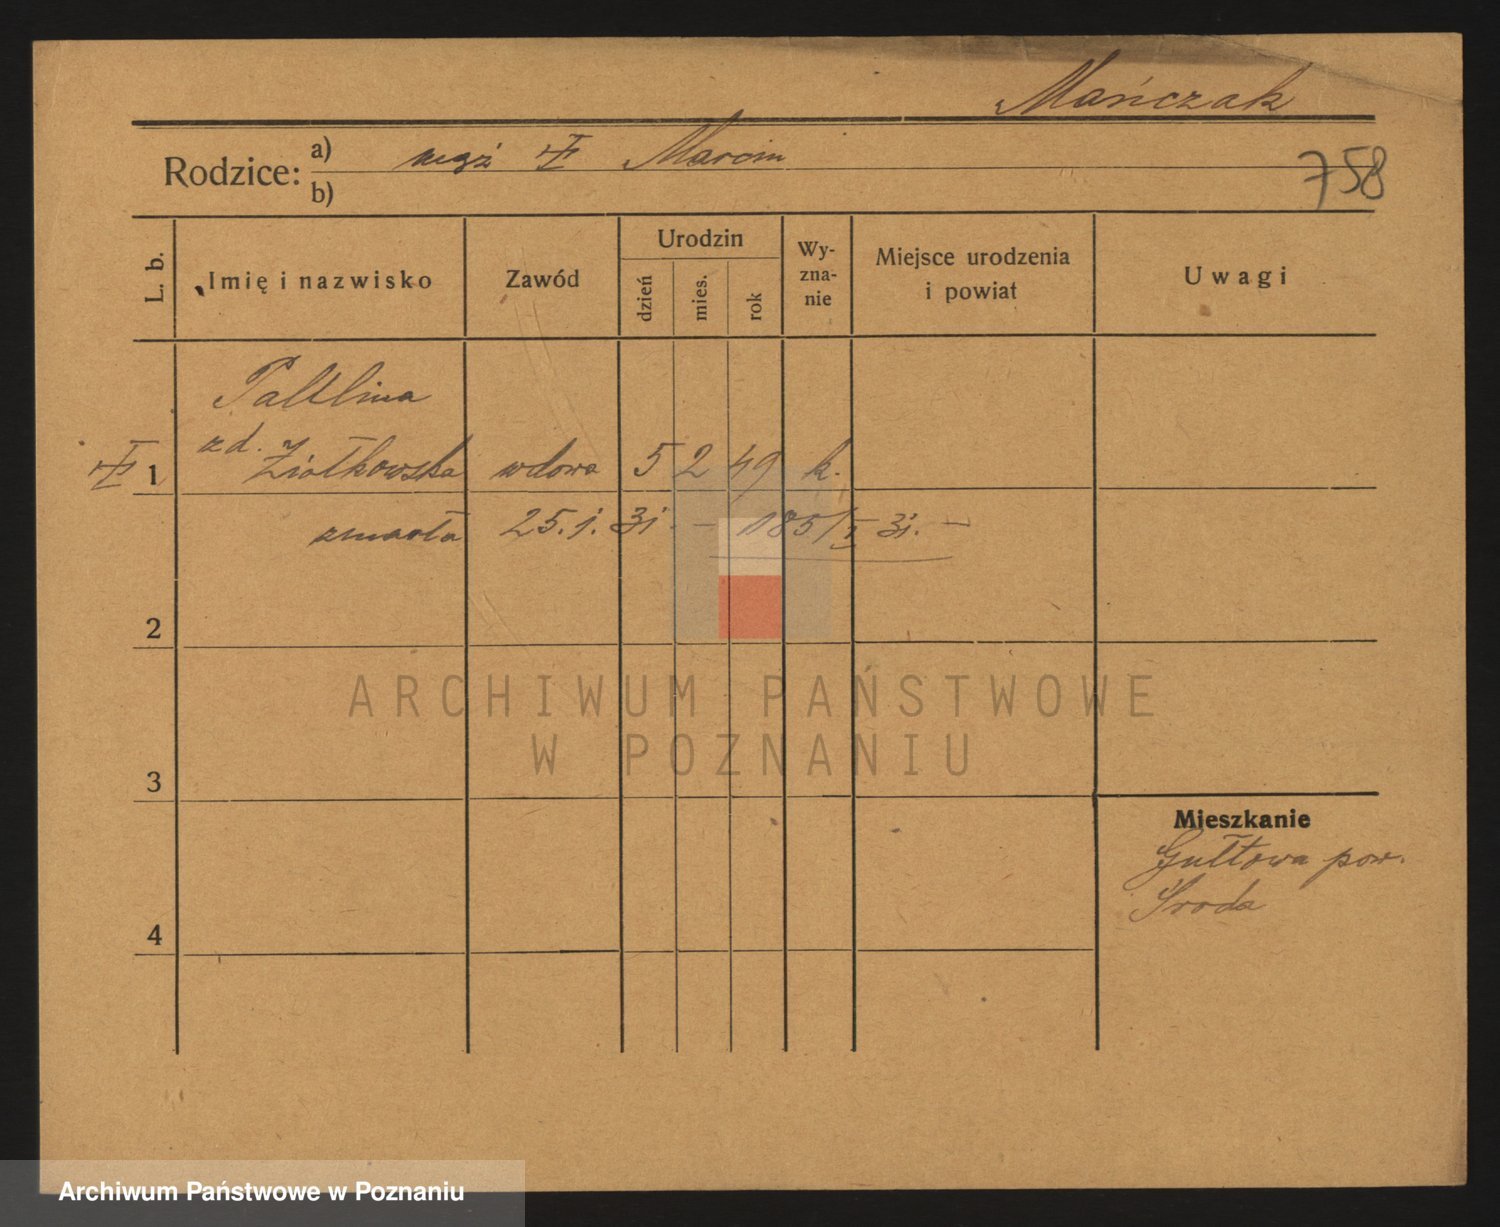 Mańczak
Rodzice: a) mąż Marcin
b)
758
L. b.
Imię i nazwisko
Zawód
Urodzin
dzień
mies.
rok
Wy-
zna-
nie
Miejsce urodzenia
i powiat
Uwagi
Paulina
zd.
1 Ziółkowska wdowa 5 2 49 k.
zmarła 25.1.31 — 185/I 31. —
2
ARCHIWUM PAŃSTWOWE
W POZNANIU
3
Mieszkanie
Gułtowa pow.
Środa
4
Archiwum Państwowe w Poznaniu